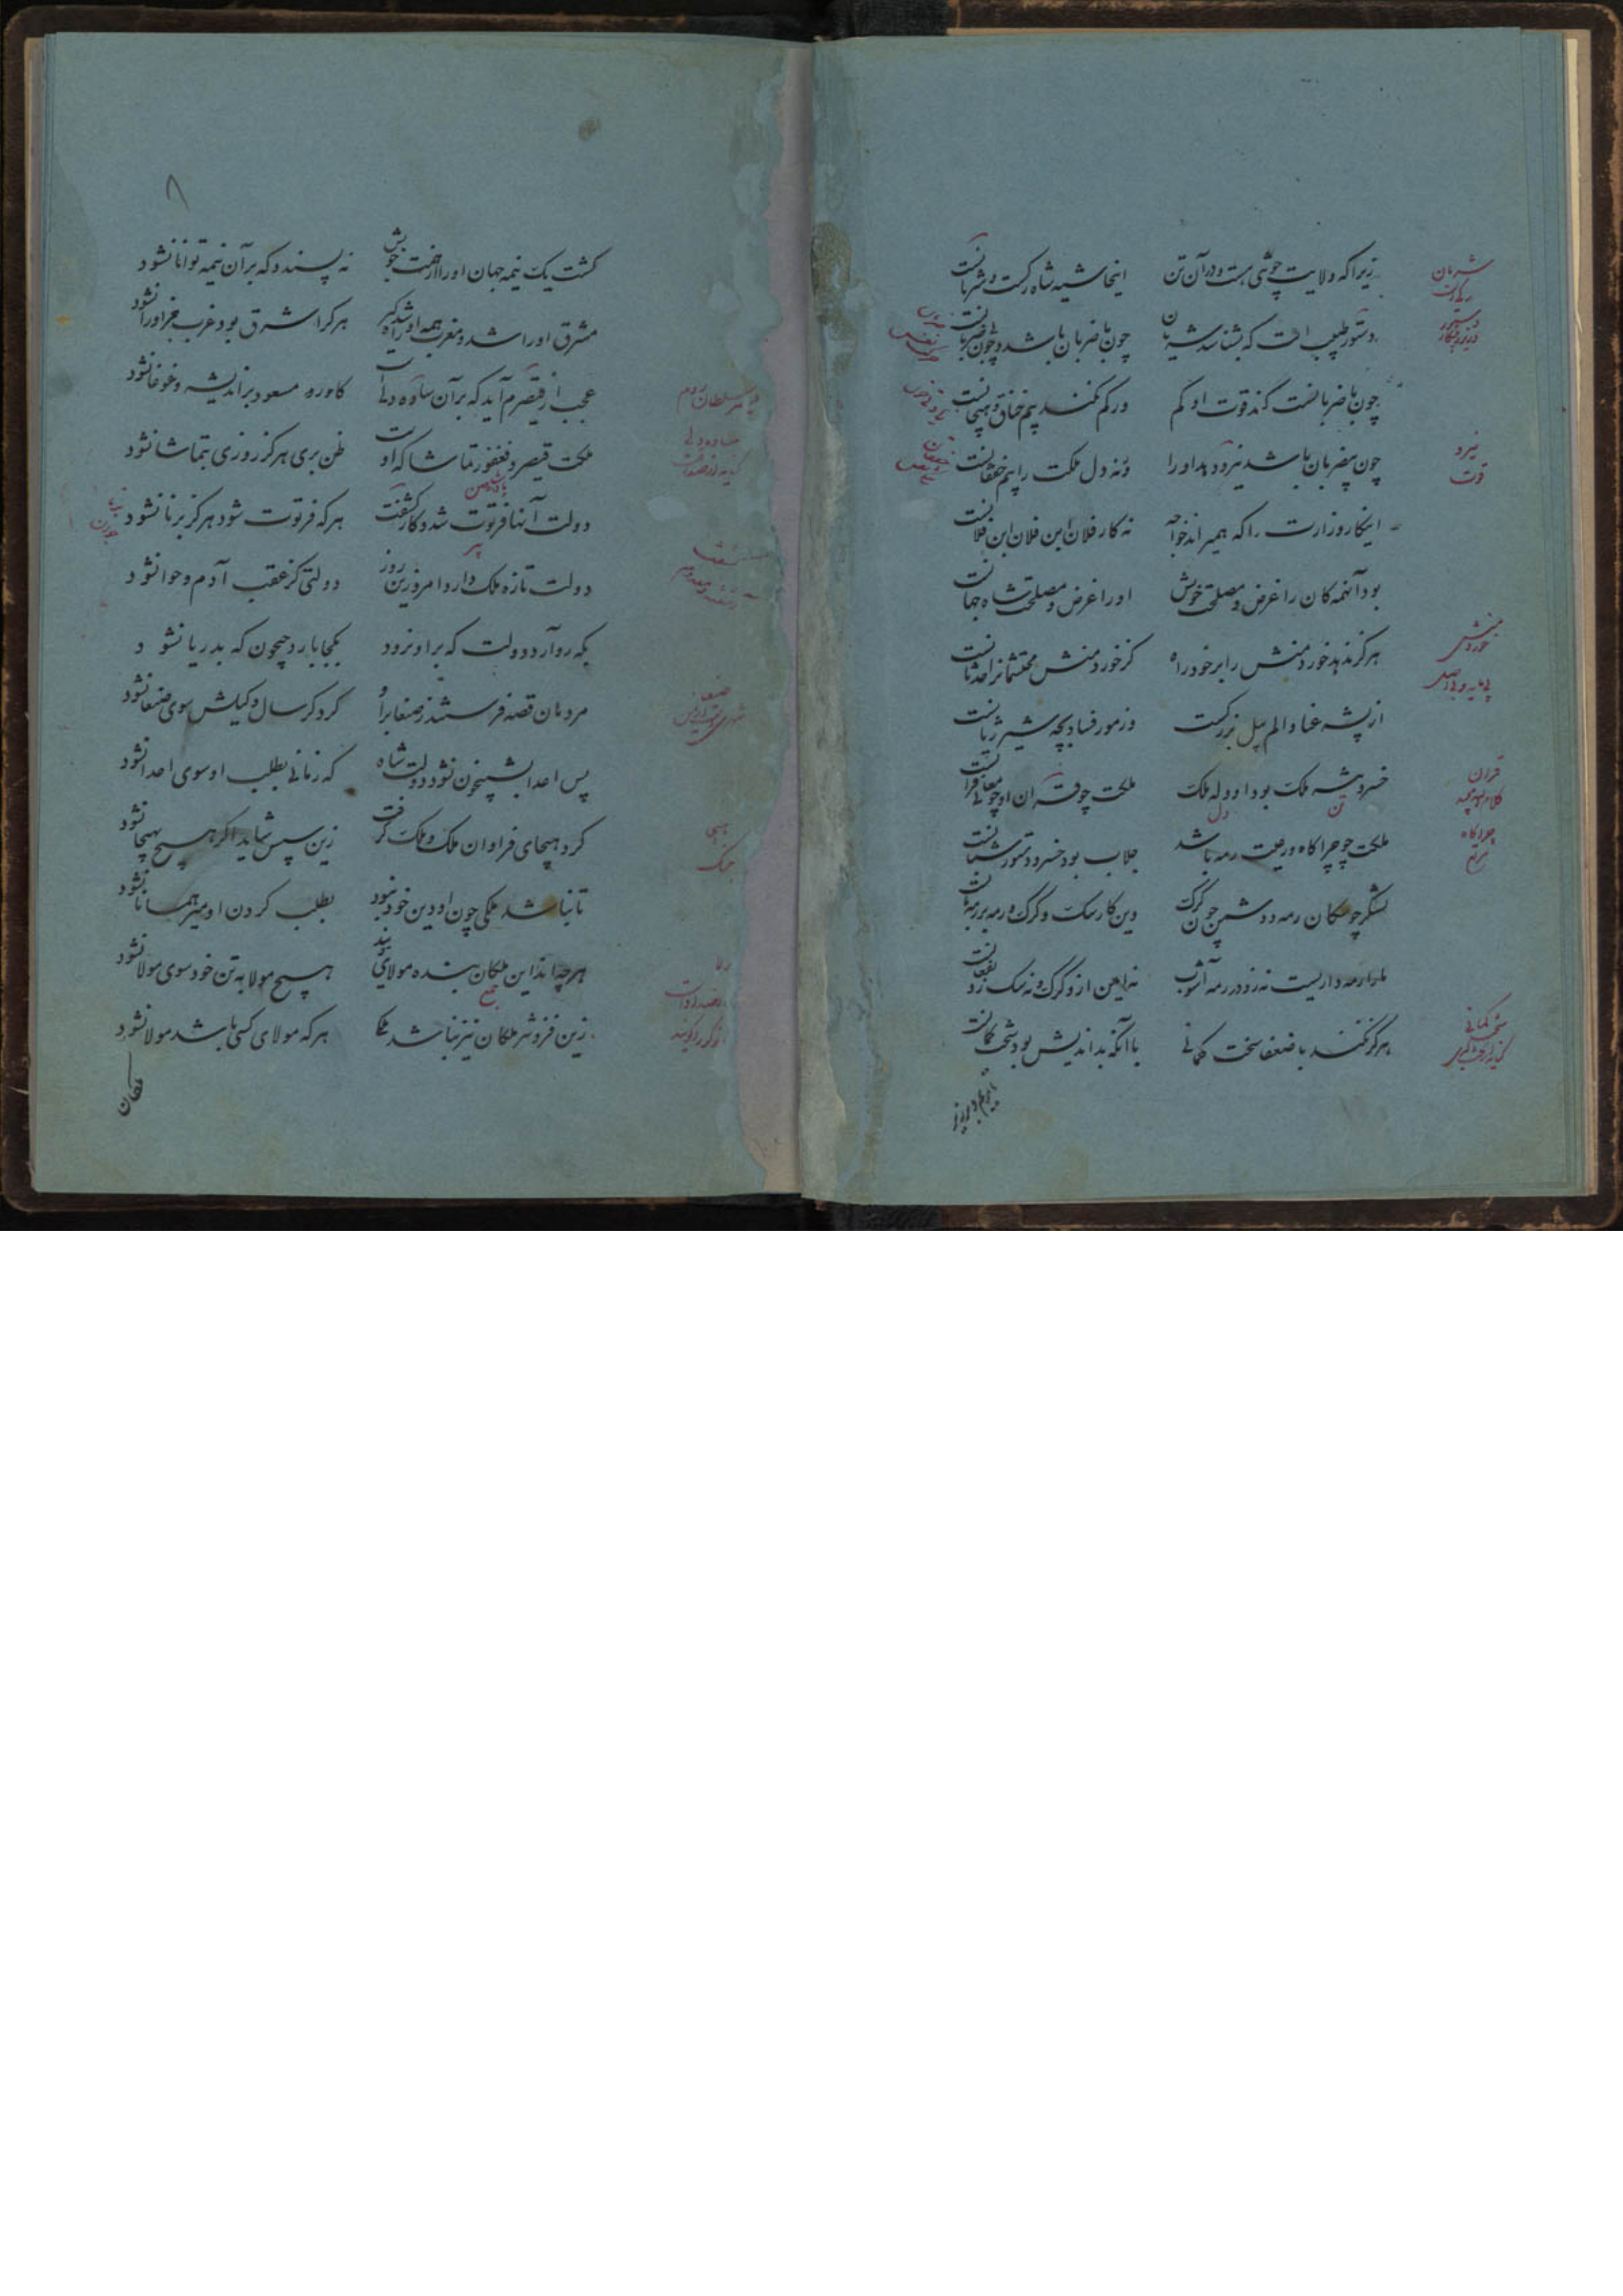 زیراکه ولایت چو تنی هست و در آن تن
اینحاشیه شاه رکست و شریانست
دستور طبیب است که بشناسد شریان
چون با ضربان باشد و چون بی ضربانست
چون با ضربانست کند قوت او کم
ور کم نکند بیم خناق و هیجانست
چون بیضربان باشد نیرو دهد او را
ورنه دل ملکت را بیم خفقانست
اینکار وزارت را که همیراند خواجه
نه کار فلان ابن فلان ابن فلانست
بود آنهمه کان را غرض و مصلحت خویش
او را غرض و مصلحت شاه جهانست
هرگز ندهد خورد منش را بر خود راه
کز خورد منش محتشمانرا حدثانست
از پشه عنا و الم پیل بزرگست
وز مور فساد بچه شیر ژیانست
خسرو تن ملک بود او دل ملک
ملکت چو قران او چو معانی قرانست
ملکت چو چراگاه و رعیت رمه باشد
جلاب بود خسرو و دستور شبانست
لشکر چو سگان رمه و دشمن چون گرگ
وین کار سگ و گرگ و رمه بر رمه بانست
ما را رمه داریست نه زو در رمه آشوب
نه ایمن ازو گرگ و نه سگ زو بفغانست
هرگز نکند با ضعفا سخت کمانی
با آنکه بد اندیش بود سخت کمانست
شریان
نیرو
قوت
خورد منش
بی مایه و بی اصل
قران
چراگاه
مرتع
سخت کمانی
۸
گشت یک نیمه جهان او را از همت خویش
نه پسندد که بر آن نیمه توانا نشود
مشرق او را شد و مغرب همه او را شده گیر
هر کرا شرق بود غرب بجز او را نشود
عجب از قیصرم آید که بر آن ساده دلی است
کاو ره مسعود براندیشه و غوغا نشود
ملکت قیصر و فغفور تماشا گه اوست
ظن بری هرگز روزی بتماشا نشود
دولت آنها فرتوت شد و کار گشفت
هر که فرتوت شود هرگز برنا نشود
دولت تازه ملک دارد امروزین روز
دولتی کز عقب آدم و حوا نشود
بکه رو آرد دولت که بر او نرود
بکجا بارد جیحون که بدریا نشود
مردمان قصه فرستند ز صنعا بر او
گر دگر سال وکیلش سوی صنعا نشود
پس اعدا بشبیخون نشود دولت شاه
که زمانی بطلب او سوی اعدا نشود
کرد هیجای فراوان ملک و ملک گرفت
زین سپس شاید اگر هیچ بهیجا نشود
تا نباشد ملکی چون او دین خود نبود
بطلب کردن او میر همانا نشود
هر چه اند این ملکان بنده و مولای ویند
هیچ مولا به تن خود سوی مولا نشود
زین فزونتر ملکان نیز نباشد ملکا
هر که مولای کسی باشد مولا نشود
ساده دلی
هیجا
جنگ